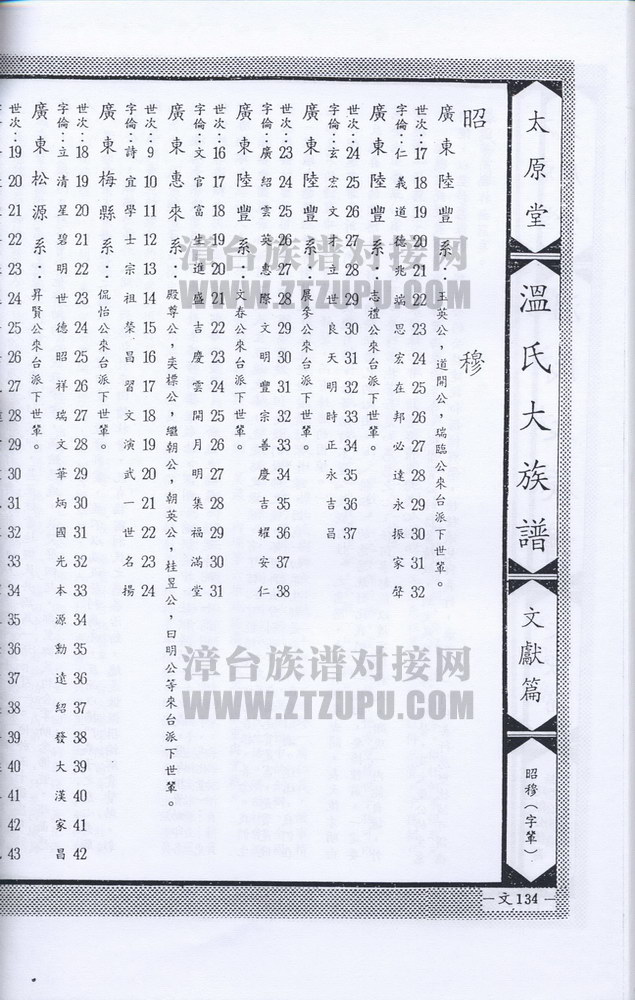 太原堂
溫氏大族譜
文獻篇
昭穆(字輩)
一文134一
昭穆
廣東陸豐系:玉英公,道開公,瑞臨公來台派下世輩。
世次:17 18 19 20 21 22 23 24 25 26 27 28 29 30 31 32
字倫:仁義道德兆端思宏在邦必達永振家聲
廣東陸豐系:志禮公來台派下世輩。
世次:24 25 26 27 28 29 30 31 32 33 34 35 36 37
字倫:玄宏文才立世良天明時正永吉昌
廣東陸豐系:展參公來台派下世輩。
世次:23 24 25 26 27 28 29 30 31 32 33 34 35 36 37 38
字倫:廣紹雲英惠際文明豐宗善慶吉耀安仁
廣東陸豐系:文春公來台派下世輩。
世次:16 17 18 19 20 21 22 23 24 25 26 27 28 29 30 31
字倫:文官富生進盛吉慶雲開月明集福滿堂
廣東惠來系:殿尊公,奕標公,繼朝公,朝英公,桂昱公,日明公等來台派下世輩。
世次:9 10 11 12 13 14 15 16 17 18 19 20 21 22 23 24
字倫:詩宜學士宗祖榮昌習文演武一世名揚
廣東梅縣系:侃怡公來台派下世輩。
世次:18 19 20 21 22 23 24 25 26 27 28 29 30 31 32 33 34 35 36 37 38 39 40 41 42
字倫:立清星碧明世德昭祥瑞文華炳國光本源勳遠紹發大漢家昌
廣東松源系:昇賢公來台派下世輩。
世次:19 20 21 22 23 24 25 26 27 28 29 30 31 32 33 34 35 36 37 38 39 40 41 42 43
漳台族谱对接网
WWW.ZTZUPU.COM
漳台族谱对接网
WWW.ZTZUPU.COM